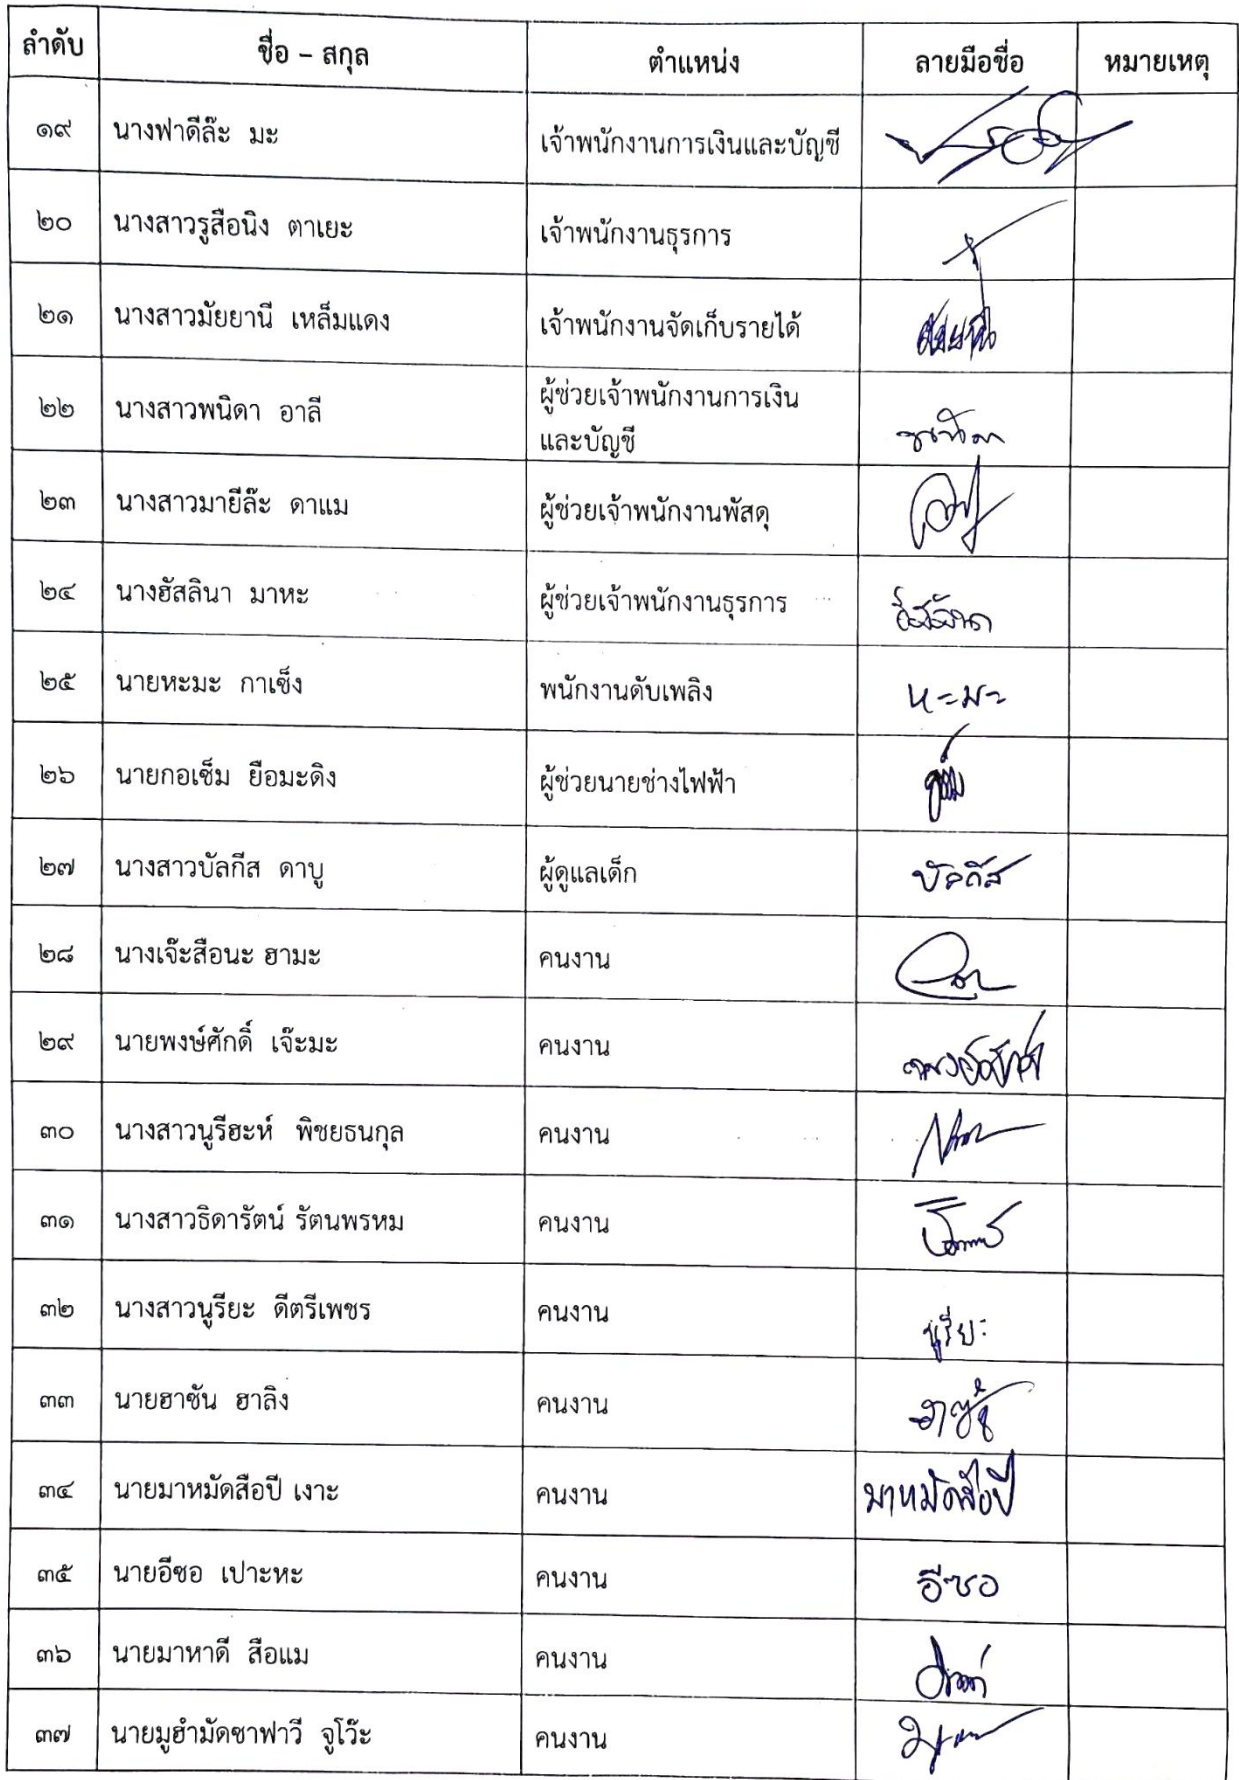 ลำดับ ชื่อ – สกุล ตำแหน่ง ลายมือชื่อ หมายเหตุ
๑๙ นางฟาดีล๊ะ มะ เจ้าพนักงานการเงินและบัญชี
๒๐ นางสาวรูสือนิง ตาเยะ เจ้าพนักงานธุรการ
๒๑ นางสาวมัยยานี เหล็มแดง เจ้าพนักงานจัดเก็บรายได้
๒๒ นางสาวพนิดา อาลี ผู้ช่วยเจ้าพนักงานการเงิน
และบัญชี
๒๓ นางสาวมายีล๊ะ ดาแม ผู้ช่วยเจ้าพนักงานพัสดุ
๒๔ นางฮัสลินา มาหะ ผู้ช่วยเจ้าพนักงานธุรการ
๒๕ นายหะมะ กาเซ็ง พนักงานดับเพลิง หะมะ
๒๖ นายกอเซ็ม ยือมะดิง ผู้ช่วยนายช่างไฟฟ้า
๒๗ นางสาวบัลกีส ดาบู ผู้ดูแลเด็ก บัลกีส
๒๘ นางเจ๊ะสือนะ ฮามะ คนงาน
๒๙ นายพงษ์ศักดิ์ เจ๊ะมะ คนงาน
๓๐ นางสาวนูรีฮะห์ พิชยธนกุล คนงาน
๓๑ นางสาวธิดารัตน์ รัตนพรหม คนงาน
๓๒ นางสาวนูรียะ ดีตรีเพชร คนงาน นูรียะ
๓๓ นายฮาซัน ฮาลิง คนงาน ฮาซัน
๓๔ นายมาหมัดสือปี เงาะ คนงาน มาหมัดสือปี
๓๕ นายอีซอ เปาะหะ คนงาน อีซอ
๓๖ นายมาหาดี สือแม คนงาน
๓๗ นายมูฮำมัดซาฟาวี จูโว๊ะ คนงาน